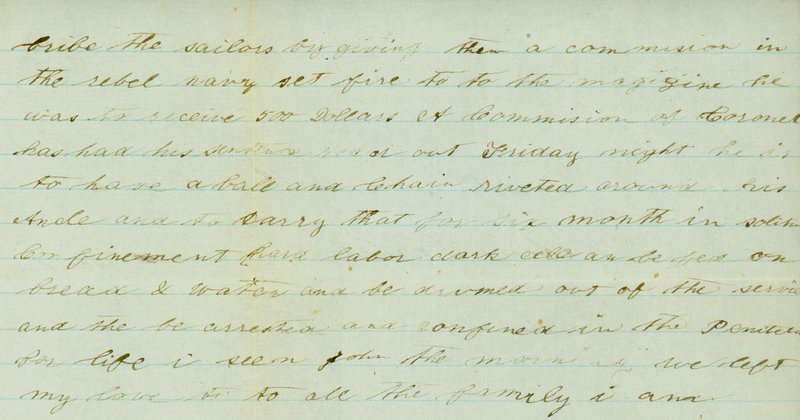 bribe the sailors by giving them a commision in
the rebel navy set fire to to the magizine he
was to receive 500 Dollars A Commision of Coronel
has had his sentence read out Friday night he is
to have a ball and Chain riveted around his
Ancle and to Carry that for six month in solit
Confinement hard labor dark cell an be fed on
bread & water and be drumed out of the servic
and the be arrested and confined in the Peniten
for life i seen John the morning we left
my love to to all the family i am